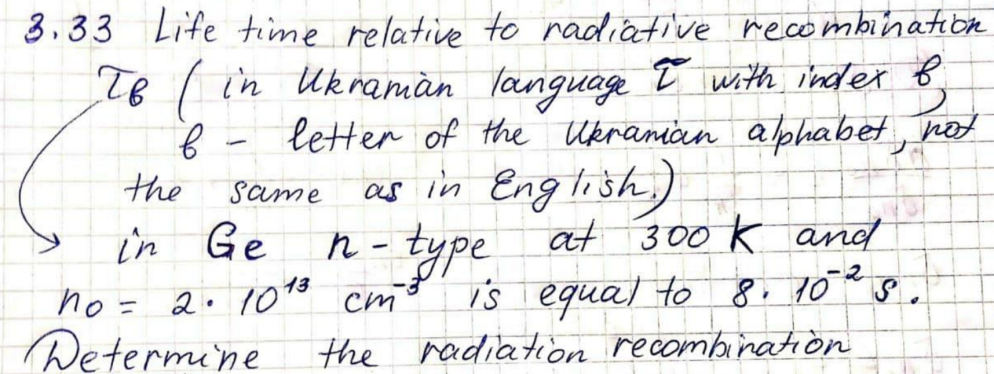 3.33 Life time relative to radiative recombination
τв ( in Ukranian language τ with index в,
в - letter of the Ukranian alphabet, not
the same as in English.)
in Ge n-type at 300 K and
n₀ = 2 · 10¹³ cm⁻³ is equal to 8 · 10⁻² s.
Determine the radiation recombination